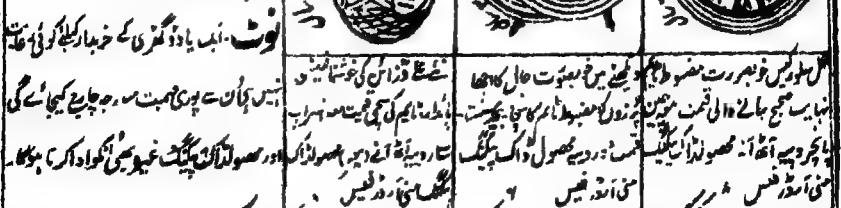 نکل سلور کیس خوبصورت مضبوط ٹائم
نہایت صحیح جانے والی قیمت مع زنجیر
پانچروپیہ آٹھ آنہ محصولڈاک پیکنگ
منی آرڈر فیس
دیکھنے میں خوبصورت چال کا اچھا
پرزوں کا مضبوط ٹائم کا سچا
قیمت دو روپیہ محصول ڈاک پیکنگ
منی آرڈر فیس
نئے نئے ڈزائن کی خوشنما
پائدار ٹائم کی سچی قیمت معہ
روپیہ آٹھ آنے محصولڈاک
پیکنگ منی آرڈر فیس
نوٹ - ایک یا دو گھڑی کے خریدار کیلئے کوئی رعایت
نہیں ان سے پوری قیمت مندرجہ چارج کیجائے گی
اور محصولڈاک پیکنگ غیرہ بھی انکو ادا کرنا ہوگا۔